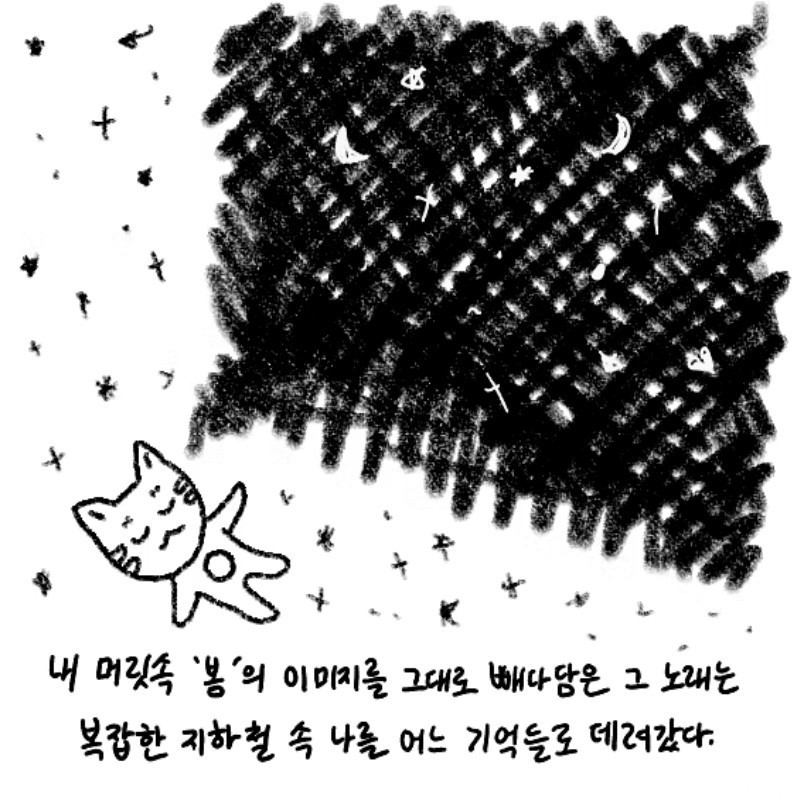 내 머릿속 '봄'의 이미지를 그대로 빼다담은 그 노래는
복잡한 지하철 속 나를 어느 기억들로 데려갔다.